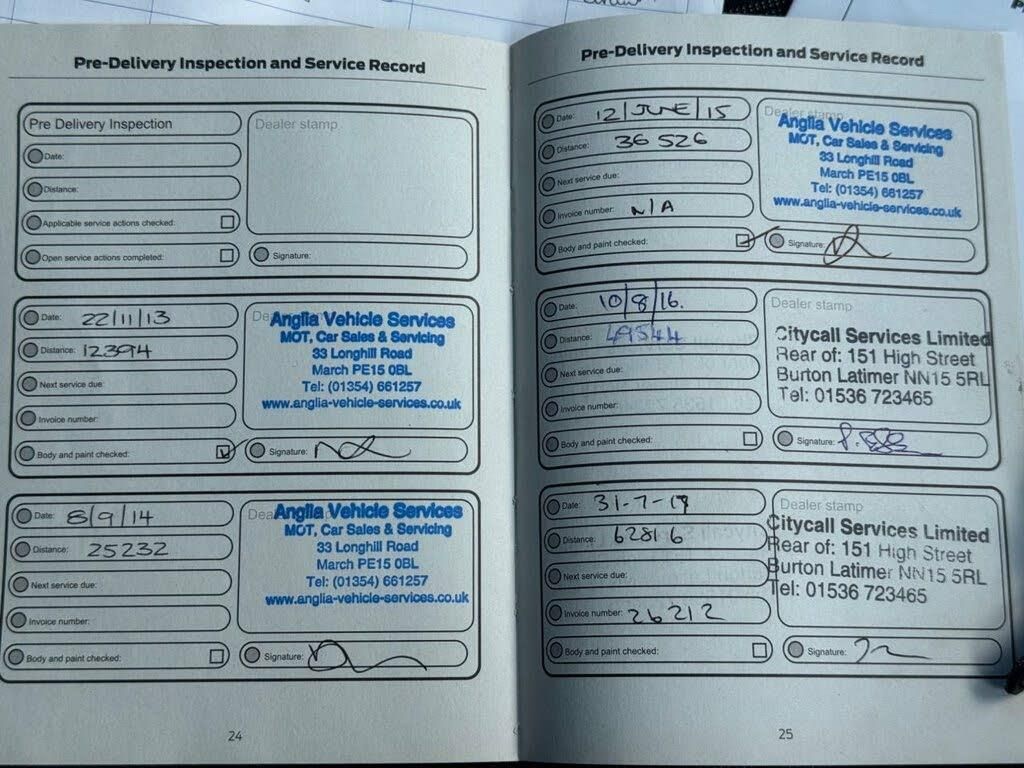 Pre-Delivery Inspection and Service Record
Pre Delivery Inspection
Dealer stamp
Date:
Distance:
Applicable service actions checked:
Open service actions completed:
Signature:
Date: 22/11/13
Distance: 12394
Next service due:
Invoice number:
Body and paint checked:
Anglia Vehicle Services
MOT, Car Sales & Servicing
33 Longhill Road
March PE15 0BL
Tel: (01354) 661257
www.anglia-vehicle-services.co.uk
Signature:
Date: 8/9/14
Distance: 25232
Next service due:
Invoice number:
Body and paint checked:
Anglia Vehicle Services
MOT, Car Sales & Servicing
33 Longhill Road
March PE15 0BL
Tel: (01354) 661257
www.anglia-vehicle-services.co.uk
Signature:
24
Pre-Delivery Inspection and Service Record
Date: 12/JUNE/15
Distance: 36526
Next service due:
Invoice number: N/A
Body and paint checked:
Dealer stamp
Anglia Vehicle Services
MOT, Car Sales & Servicing
33 Longhill Road
March PE15 0BL
Tel: (01354) 661257
www.anglia-vehicle-services.co.uk
Signature:
Date: 10/8/16.
Distance: 49544
Next service due:
Invoice number:
Body and paint checked:
Dealer stamp
Citycall Services Limited
Rear of: 151 High Street
Burton Latimer NN15 5RL
Tel: 01536 723465
Signature:
Date: 31-7-
Distance: 62816
Next service due:
Invoice number: 26212
Body and paint checked:
Dealer stamp
Citycall Services Limited
Rear of: 151 High Street
Burton Latimer NN15 5RL
Tel: 01536 723465
Signature:
25